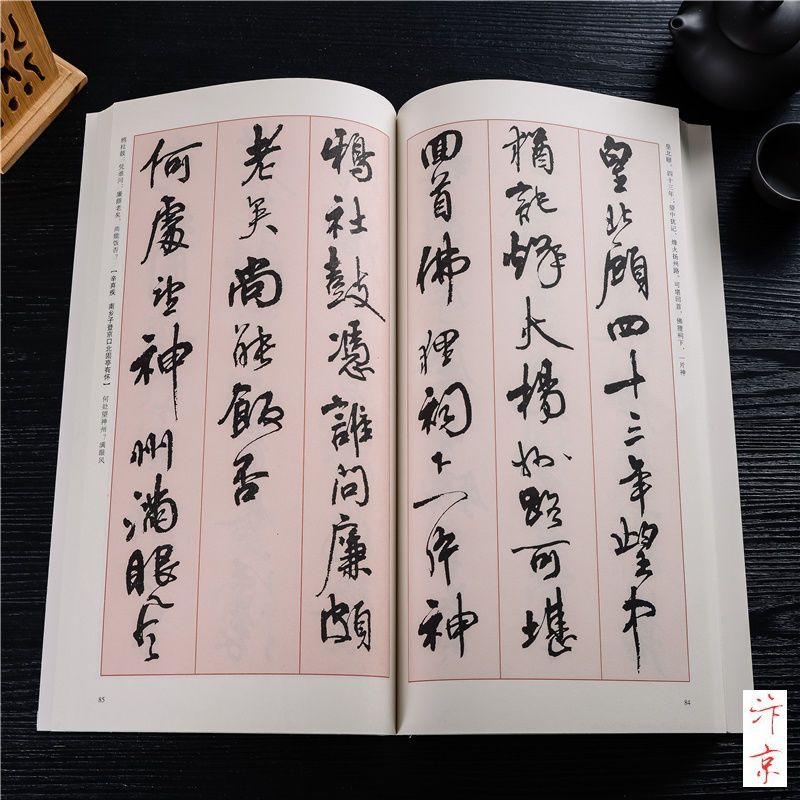 皇北顾。四十三年,望中犹记,烽火扬州路。可堪回首,佛狸祠下,一片神
皇北顧四十三年望中
猶記烽火楊州路可堪
回首佛狸祠下一片神
84
鴉社鼓憑誰問廉頗
老矣尚能飯否
何處望神州滿眼風
鸦社鼓。凭谁问:廉颇老矣,尚能饭否?【辛弃疾 南乡子登京口北固亭有怀】何处望神州?满眼风
85
汴京